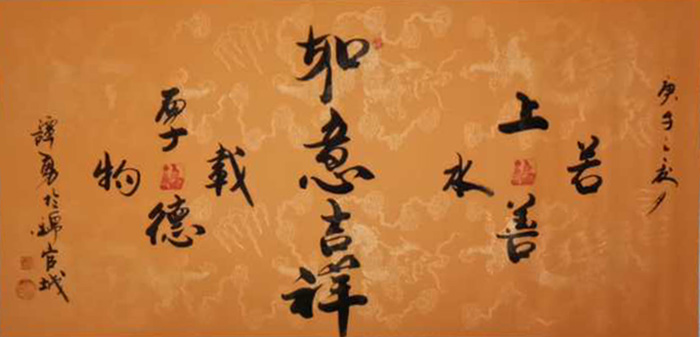 庚子之
上善若水
如意吉祥
厚德載物
譚勇於錦官城
福
福